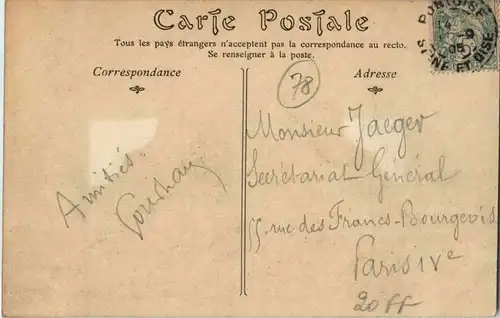 Carte Postale
Tous les pays étrangers n'acceptent pas la correspondance au recto.
Se renseigner à la poste.
Correspondance
Adresse
PONTOISE
SEINE ET OISE
78
Monsieur Jaeger
Secrétariat Général
55 rue des Francs-Bourgeois
Paris IVe
20 FF
Amitiés.